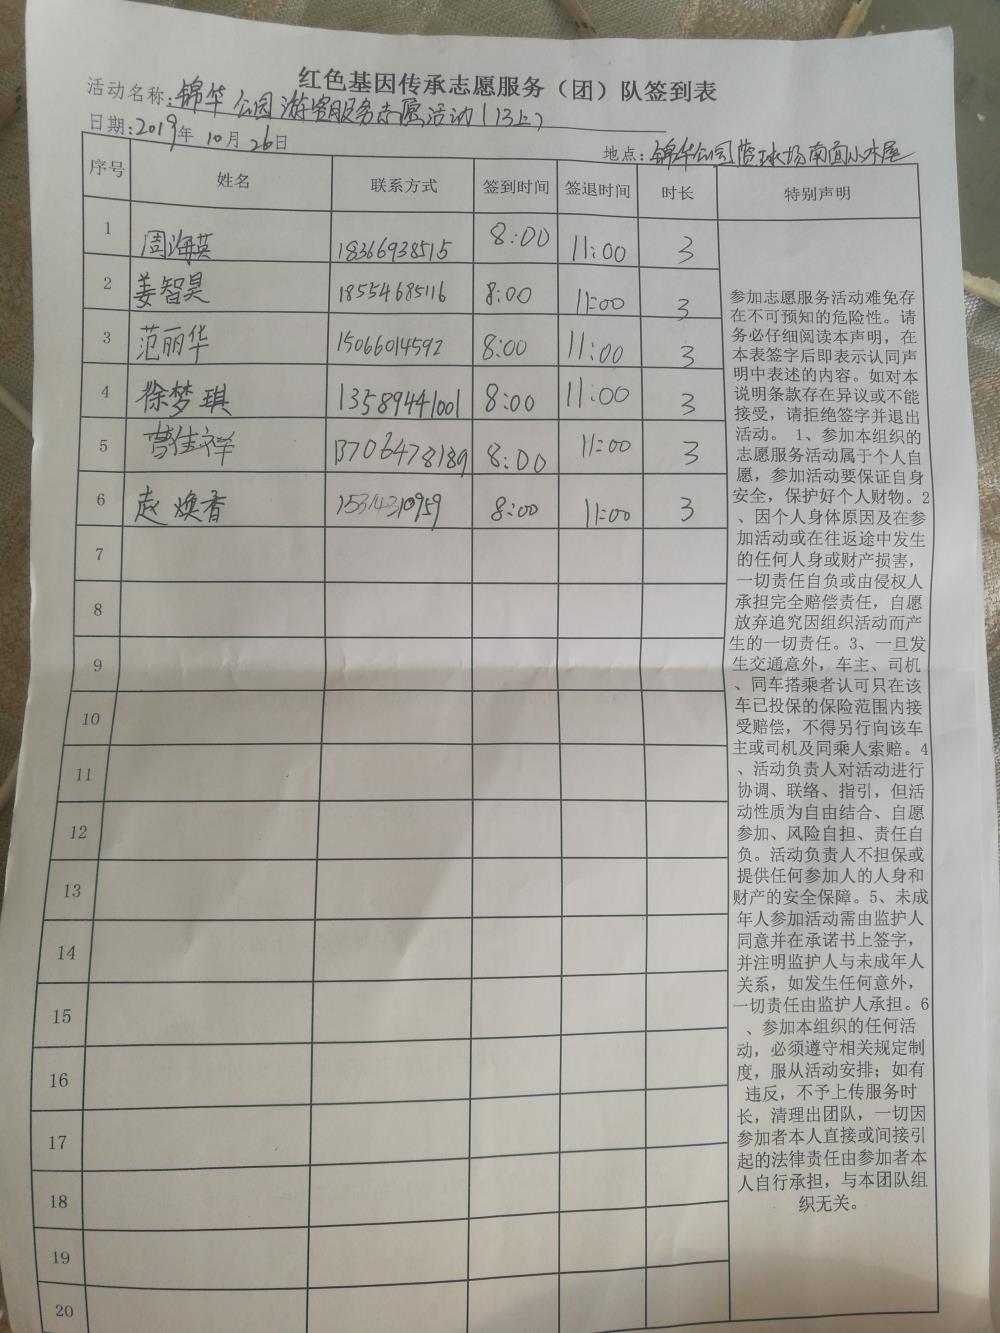 红色基因传承志愿服务（团）队签到表
活动名称：锦华公园游客服务志愿活动（13上）
日期：2019年10月26日
地点：锦华公园篮球场南面小木屋
序号 姓名 联系方式 签到时间 签退时间 时长 特别声明
1 周海英 18366938515 8:00 11:00 3
2 姜智昊 18554685116 8:00 11:00 3
3 范丽华 15066014592 8:00 11:00 3
4 徐梦琪 13589441001 8:00 11:00 3
5 曹佳祥 13706478189 8:00 11:00 3
6 赵焕香 15314310959 8:00 11:00 3
7
8
9
10
11
12
13
14
15
16
17
18
19
20
参加志愿服务活动难免存
在不可预知的危险性。请
务必仔细阅读本声明，在
本表签字后即表示认同声
明中表述的内容。如对本
说明条款存在异议或不能
接受，请拒绝签字并退出
活动。 1、参加本组织的
志愿服务活动属于个人自
愿，参加活动要保证自身
安全，保护好个人财物。2
、因个人身体原因及在参
加活动或在往返途中发生
的任何人身或财产损害，
一切责任自负或由侵权人
承担完全赔偿责任，自愿
放弃追究因组织活动而产
生的一切责任。3、一旦发
生交通意外，车主、司机
、同车搭乘者认可只在该
车已投保的保险范围内接
受赔偿，不得另行向该车
主或司机及同乘人索赔。4
、活动负责人对活动进行
协调、联络、指引，但活
动性质为自由结合、自愿
参加、风险自担、责任自
负。活动负责人不担保或
提供任何参加人的人身和
财产的安全保障。5、未成
年人参加活动需由监护人
同意并在承诺书上签字，
并注明监护人与未成年人
关系，如发生任何意外，
一切责任由监护人承担。6
、参加本组织的任何活
动，必须遵守相关规定制
度，服从活动安排；如有
违反，不予上传服务时
长，清理出团队，一切因
参加者本人直接或间接引
起的法律责任由参加者本
人自行承担，与本团队组
织无关。